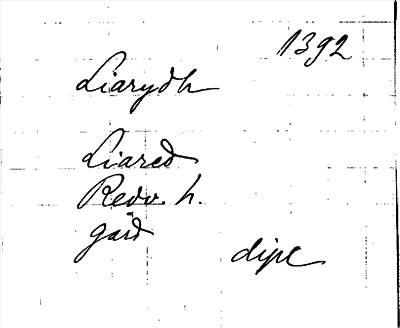 1392
Liarydh
Liared
Redv. h.
gård
dipl